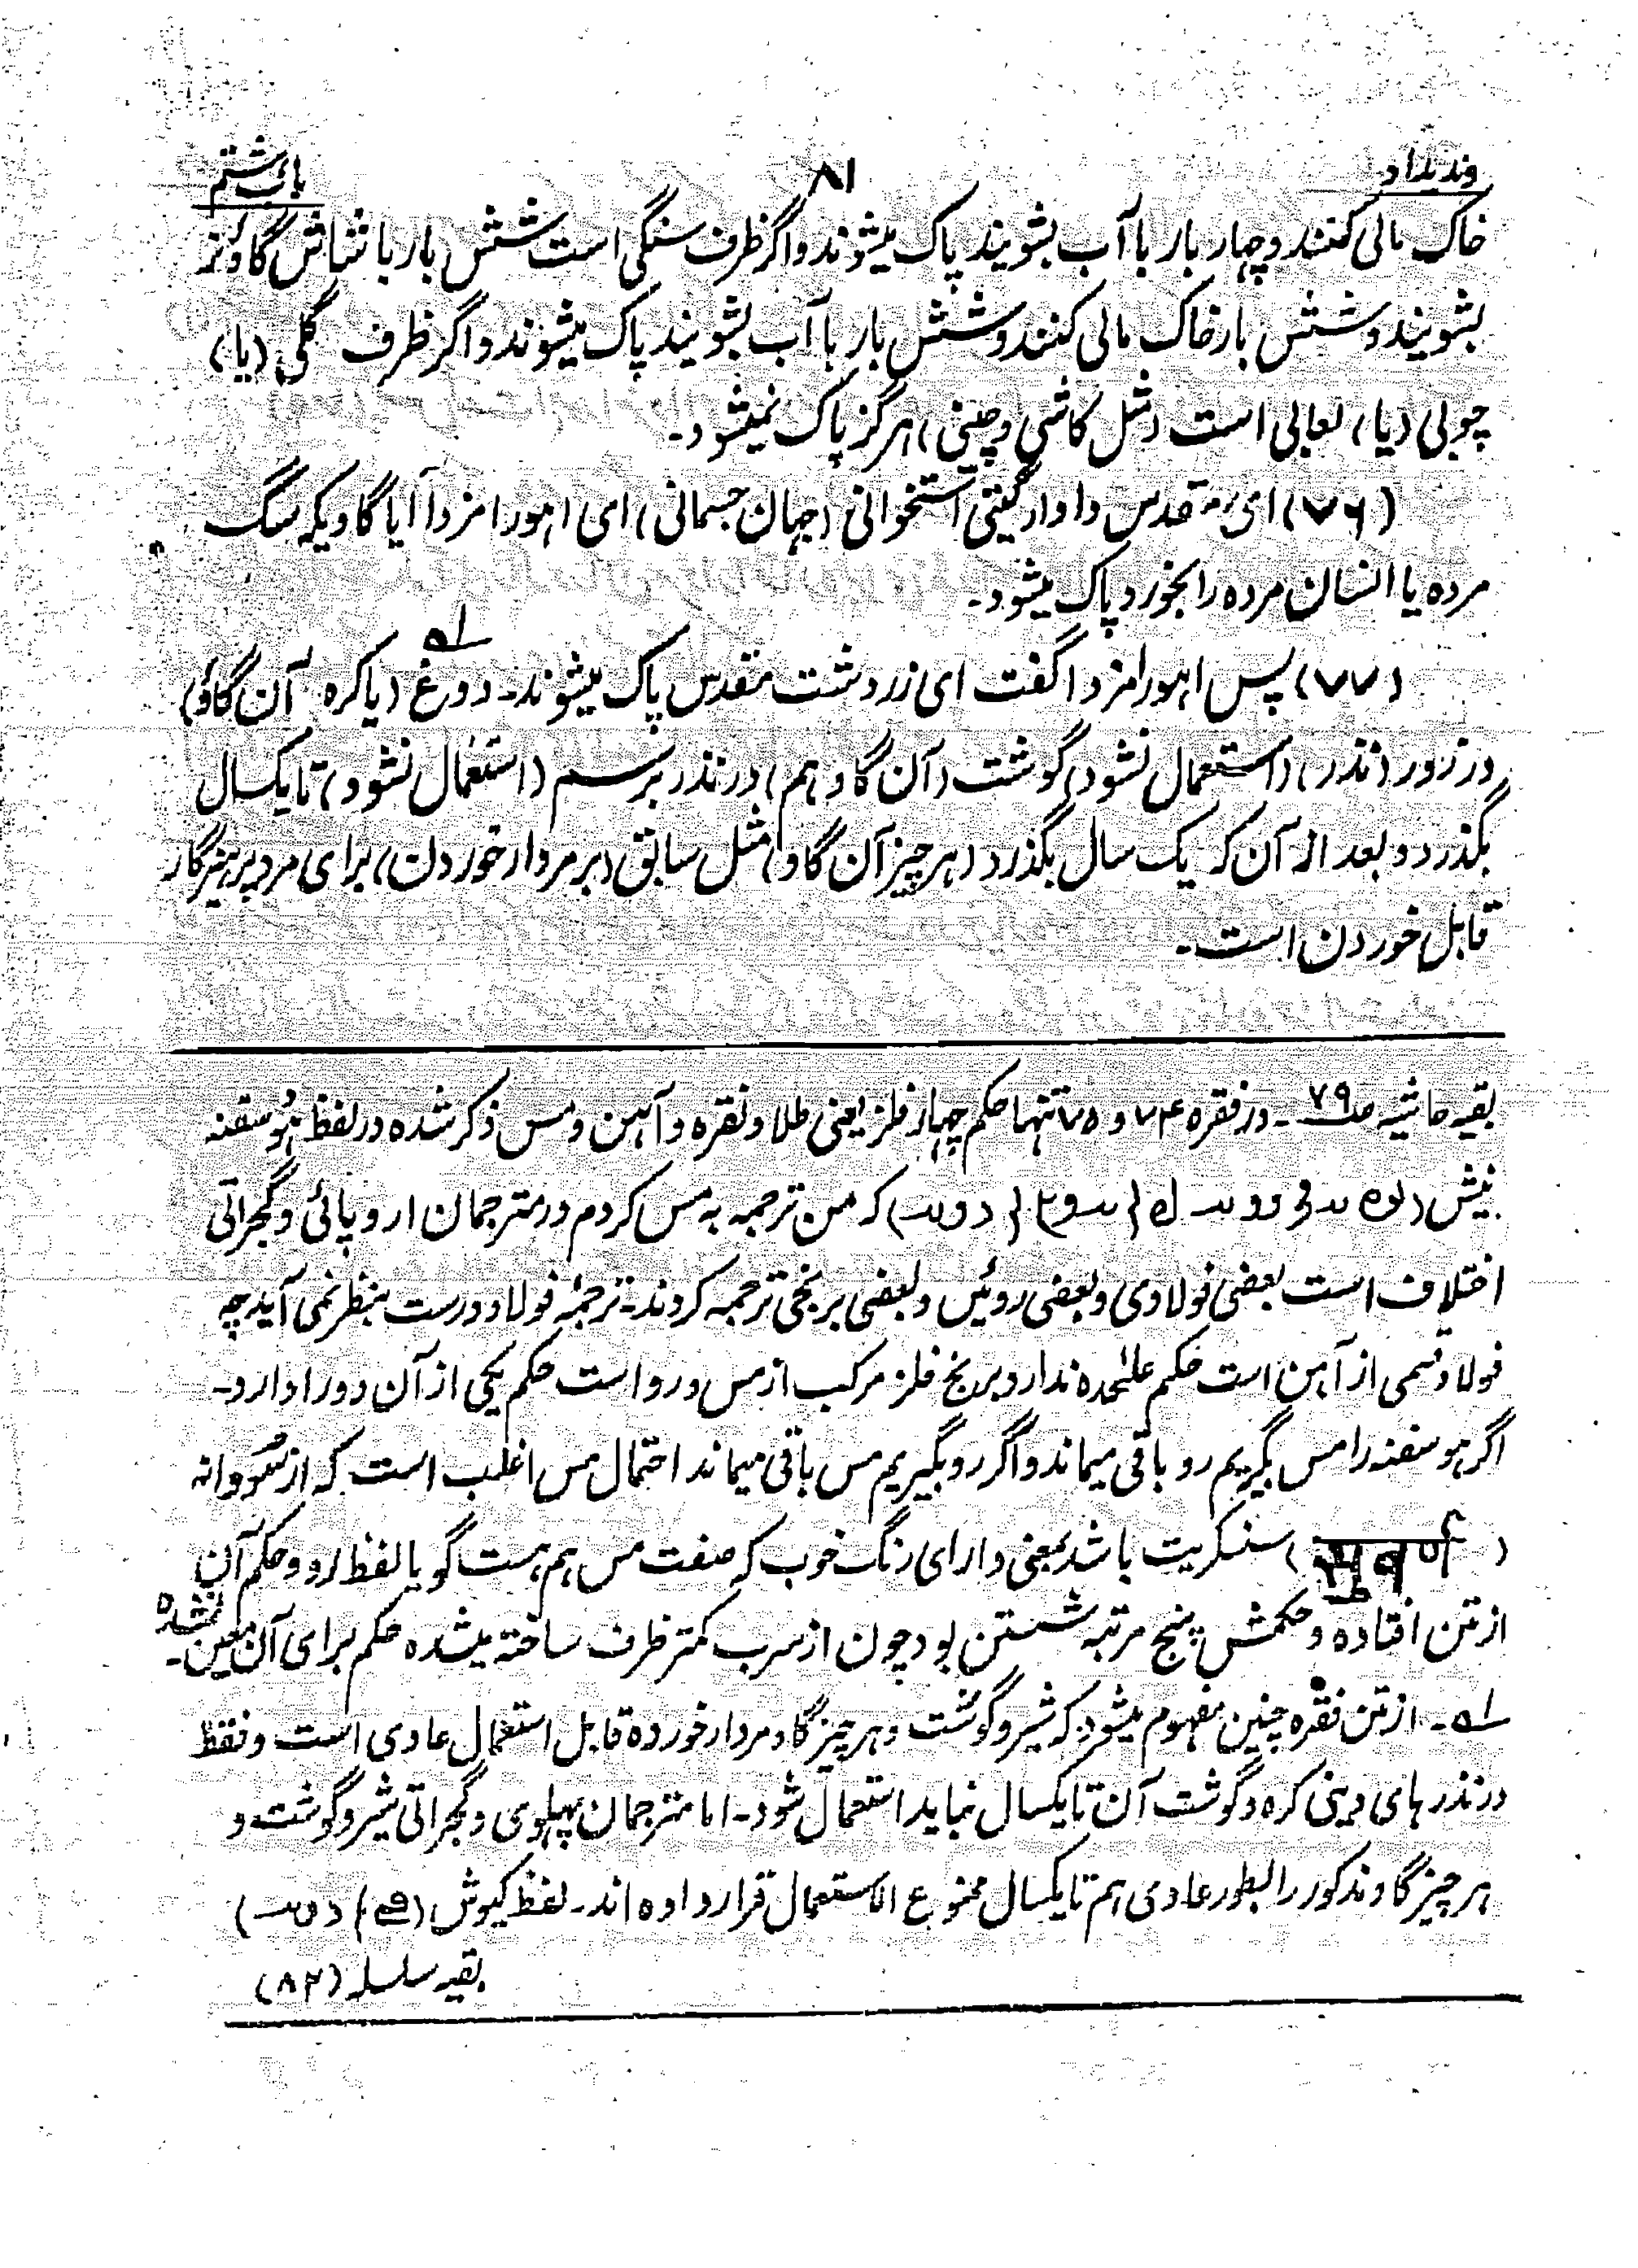 وندیداد ۸۱ باب هشتم
خاک مالی کنند و چهار بار با آب بشویند پاک میشوند و اگر ظرف سنگی است شش بار با شاش گاو نر
بشویند و شش بار خاک مالی کنند و شش بار با آب بشویند پاک میشوند و اگر ظرف گلی (یا)
چوبی (یا) لعابی است (مثل کاشی و چینی) هرگز پاک نمیشود۔
(۷۶) ای مقدس داوار گیتی استخوانی (جهان جسمانی) ای اهورامزدا آیا گاویکه سگ
مرده یا انسان مرده را بخورد پاک میشود۔
(۷۷) پس اهورامزدا گفت ای زردشت مقدس پاک میشوند۔ دوغ (یا کره آن گاو)
در زور (نذر) (استعمال نشود) گوشت (آن گاو هم) در نذر برسم (استعمال نشود) تا یکسال
بگذرد و بعد از آن که یک سال بگذرد (هر چیز آن گاو) مثل سابق (بر مردار خوردن) برای مرد پرهیزگار
قابل خوردن است۔
بقیه حاشیه صـ ۷۹ ۔ در فقره ۷۴ و ۷۵ تنها حکم چهار فلز یعنی طلا و نقره و آهن و مس ذکر شده در لفظ هوسفنه
نیش ( ) که من ترجمه به مس کردم در مترجمان اروپائی و گجراتی
اختلاف است بعضی فولادی و بعضی روئین و بعضی برنجی ترجمه کردند۔ ترجمهٔ فولاد درست بنظر نمی آید چه
فولاد قسمی از آهن است حکم علیٰحده ندارد برنج فلز مرکب از مس و رو است حکم یکی از آن دو را دارد۔
اگر هوسفنه را مس بگیریم رو باقی میماند و اگر رو بگیریم مس باقی میماند احتمال مس اغلب است که از سووانه
(सुवर्ण) سنسکریت باشد بمعنی دارای رنگ خوب که صفت مس هم هست گویا لفظ رو و حکم آن
از متن افتاده و حکمش پنج مرتبه شستن بود چون از سرب کمتر ظرف ساخته میشده حکم برای آن معین نشده۔
لـه۔ از متن فقره چنین مفهوم میشود که شیر و گوشت و هر چیز گاو مردار خورده قابل استعمال عادی است و فقط
در نذرهای دینی کره و گوشت آن تا یکسال نباید استعمال شود۔ اما مترجمان پهلوی و گجراتی شیر و گوشت و
هر چیز گاو مذکور را بطور عادی هم تا یکسال ممنوع الاستعمال قرار داده اند۔ لفظ گیوش ( )
بقیه سلسله (۸۲)